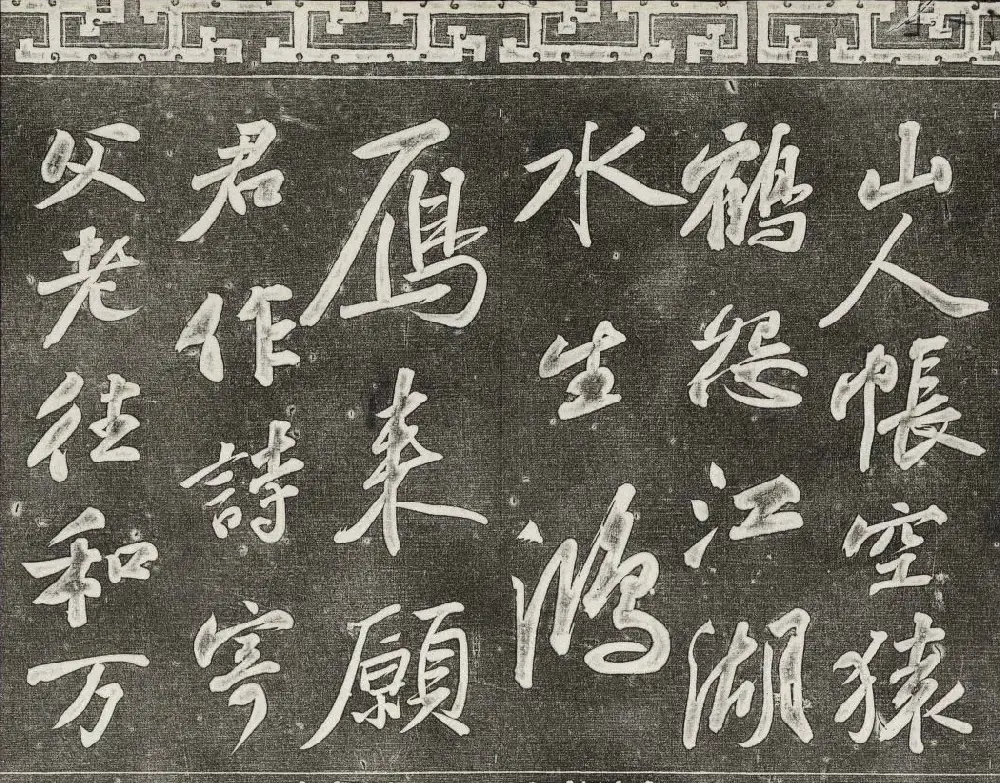 山人帳空猿
鶴怨江湖
水生鴻
雁来願
君作詩寄
父老往和万